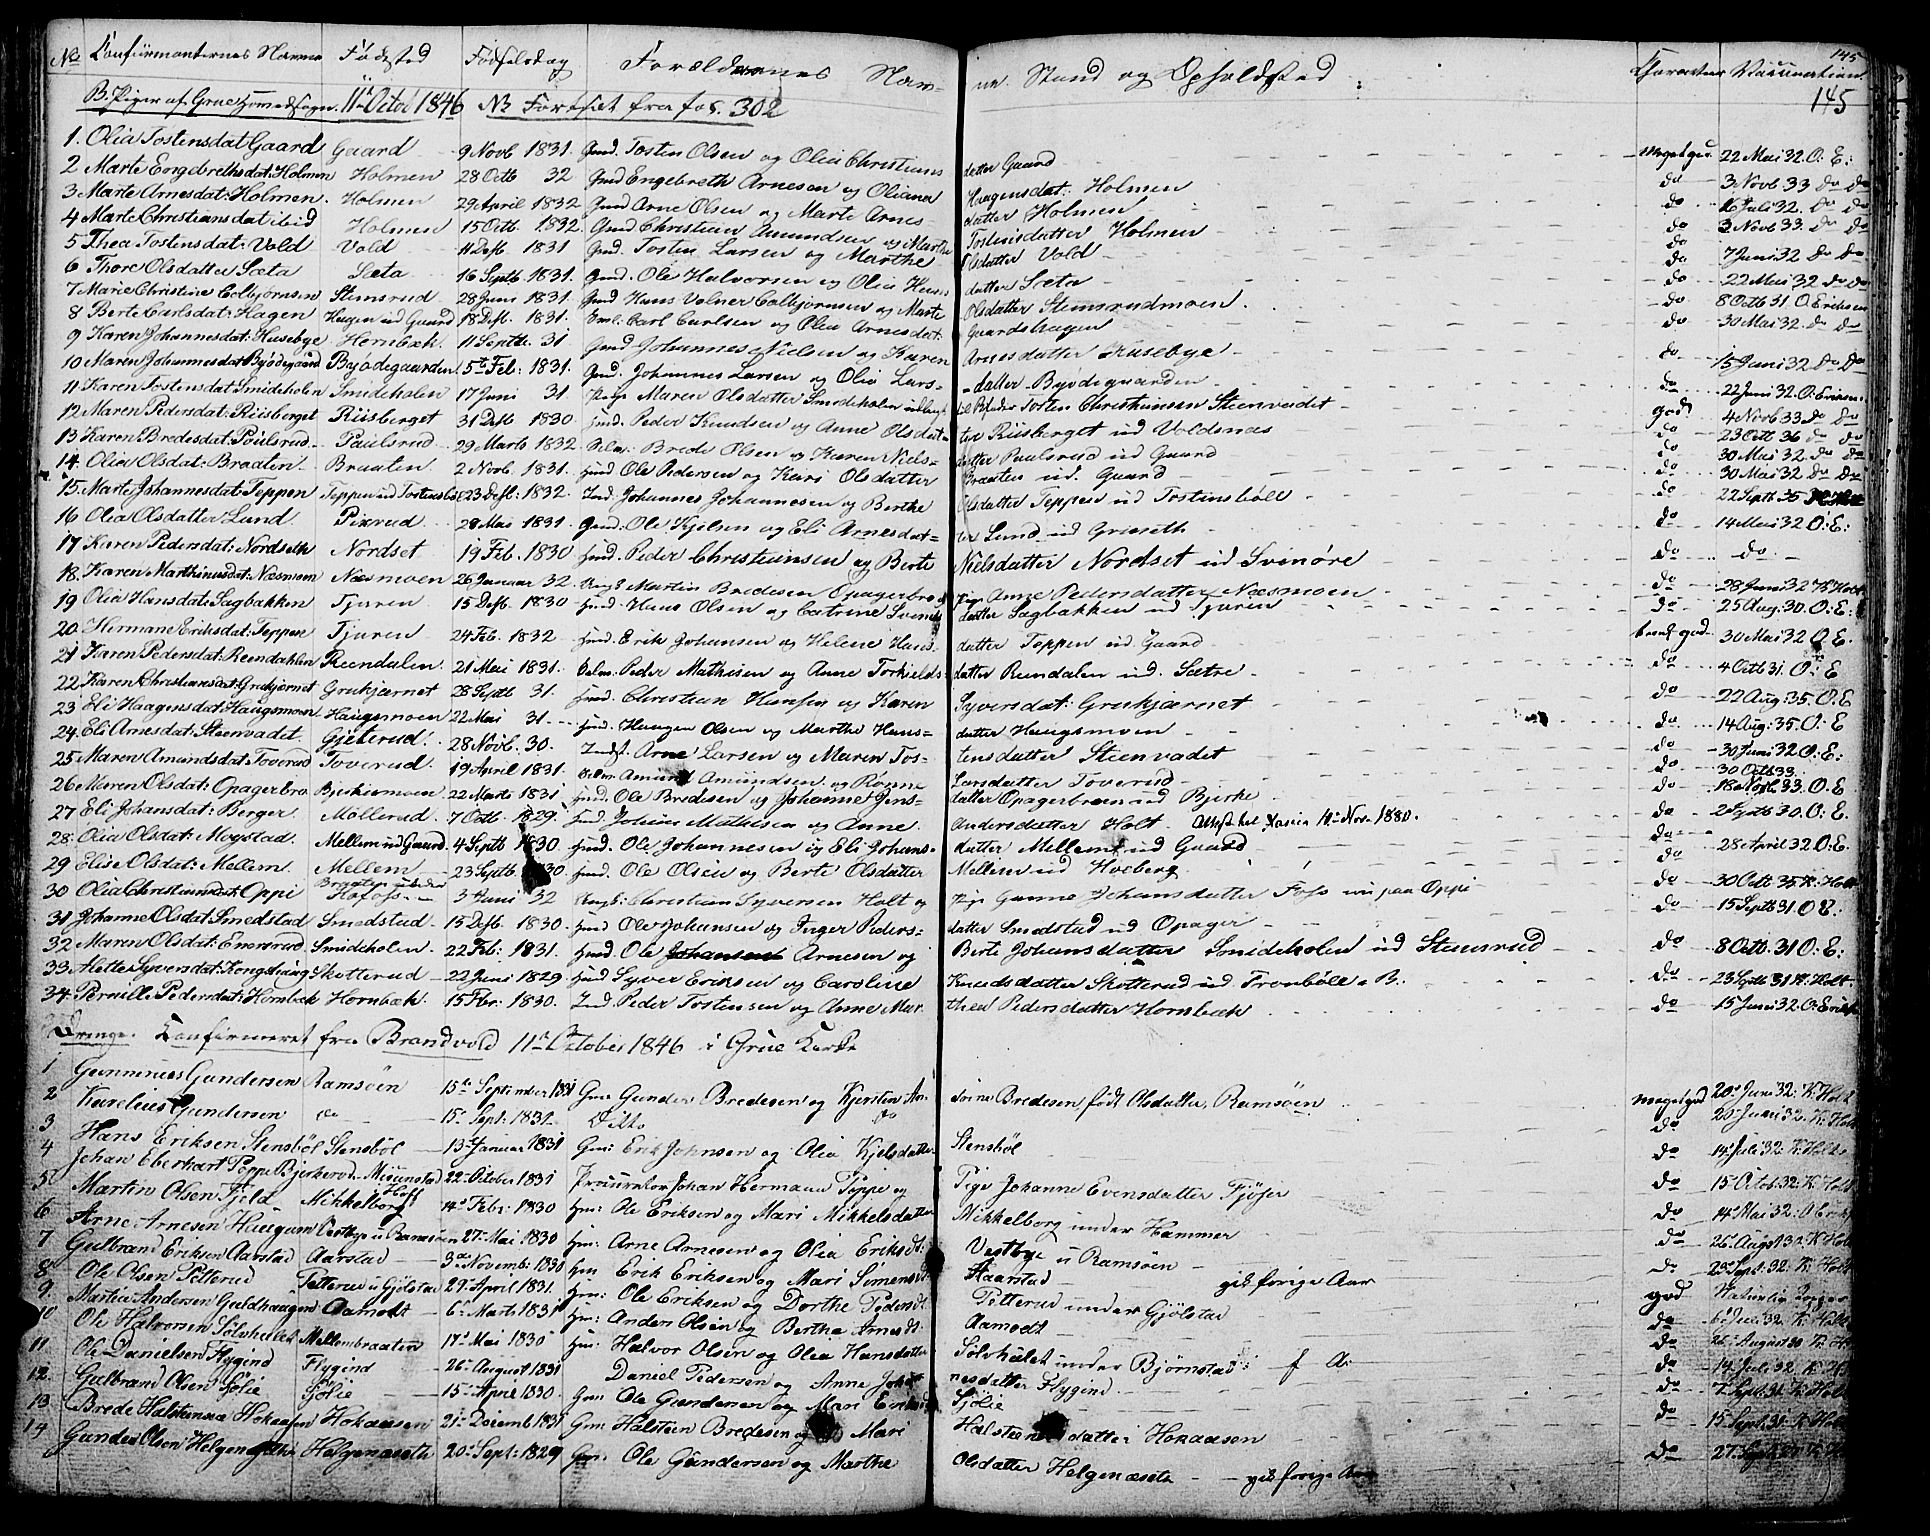 145
No Confirmanternes Navne Fødested Fødselsdag Forældrenes Navne Stand og Opholdsted Characteer Vaccination
B. Piger af Grue Hovedsogn 11te Octbr 1846 NB Fortsat fra fol. 302 145
1. Olia Tostensdat Gaard Gaard 9 Novb 1831. Gmd. Tosten Olsen og Olia Christians datter Gaard meget god 22 Mai 32 O: E:
2 Marte Engebrethsdat: Holmen Holmen 28 Octb 32 Gmd Engebreth Arnesen og Oliana Haagensdat: Holmen do 3 Novb 33 do do
3 Marte Arnesdat: Holmen Holmen 29 April 1832 Gmd Arne Olsen og Marte Arnes datter Holmen do 16 Juli 32. do do
4 Marte Christiansdat ibid Holmen 15 Octb. 1832. Gmd Christian Amundsen og Marthe Tostensdatter Holmen do 3 Novb 33. do do
5 Thea Tostensdat: Vold Vold 11 Desb 1831 Gmd. Tosten Larsen og Marthe Olsdatter Vold do 7 Juni 32 do do
6 Thore Olsdatter Sæta Sæta 16 Septb. 1831. Gmd. Ole Halvorsen og Olia Hans datter Sæta do 22 Mai 32 do do
7 Marie Christine Colbjørnsen Stemsrud 28 Juni 1831. Gmd Hans Velner Colbjørnsen og Marte Olsdatter Stemsrudmoen. do 8 Octb 31 O. Eriksen
8 Berte Carlsdat: Hagen Hagen ud Gaard 18 Desb. 1831. Carl Carlsen og Olia Arnesdat: Gaardshagen do 30 Mai 32 do do
9 Karen Johannesdat: Husebye Hernbæk 11 Septb. 31 Gmd Johannes Nielsen og Karen Arnesdatter Husebye do 15 Juni 32 do do
10 Maren Johannesdat Byødegaard Byødegaarden 5te Feb: 1831. Gmd. Johannes Larsen og Olia Lars datter Byødegaarden do 22 Juni 32. O: Eriksen
11 Karen Tostensdat: Smideholen Smideholen 17 Juni 31 Pige Maren Olsdatter Smideholen udlagt til Bfader Tosten Christiansen Steenvadet god 4 Novb 33 do do
12 Maren Pedersdat: Riisberget Riisberget 31 Desb 1830 Hmd. Peder Knudsen og Anne Olsdatter Riisberget ud Voldsnæs do 23 Octb 36 do do
13 Karen Bredesdat: Poulsrud Paulsrud 29 Marts 1832 Brede Olsen og Karen Niels datter Paulsrud ud Gaard do 30 Mai 32. do do
14. Olia Olsdat: Braaten Braaten 2 Novb. 1831. Hmd Ole Pedersen og Kari Olsdatter Braaten ud. Gaard do 30 Mai 32 do do
15 Marte Johannesdat: Teppen Teppen ud Tostensbøl 23 Desb. 1832. Ind. Johannes Johannesen og Berthe Olsdatter Teppen ud Tostensbøll do 22 Septb 35
16 Olia Olsdatter Lund Pixrud 28 Mai 1831. Gmd: Ole Kjelsen og Eli Arnesdatter Lund ud Grinseth do 14 Mai 32 O: E:
17 Karen Pedersdat: Nordseth Nordset 19 Feb. 1830 Hmd. Peder Christiansen og Berte Nielsdatter Nordset ud Svenøre do do
18. Karen Marthinusdat: Næsmoen Næsmoen 26 Januar 32. Ungk Martin Bredesen Opagerbro og Pige Anne Pedersdatter Næsmoen do 28 Juni 32 K Holt
19 Olia Hansdat: Sagbakken Tjuren 15 Desb. 1830 Hmd. Hans Olsen og Catrine Svends datter Sagbakken ud Tjuren do 25 Aug: 30. O: E:
20. Hermane Eriksdat: Teppen Tjuren 24 Feb. 1832 Hmd. Erik Johansen og Helene Hans datter Teppen ud Gaard temmelig god 30 Mai 32 O E.
21 Karen Pedersdat: Reendahlen Reendalen. 21 Mai 1831. Peder Mathisen og Anne Torkields datter Reendalen ud. Sætre do 4 Octb 31. O: E
22 Karen Christiansdat: Grukjernet Grukjernet 28 Septb 31. Hmd. Christian Hansen og Karen Syversdat: Grukjernet do 22 Aug: 35. O. E
23 Eli Haagensdat: Haugsmoen Haugsmoen 22 Mai 31. Hmd. Haagen Olsen og Marthe Hans datter Haugsmoen do 14 Aug: 35. O: E
24. Eli Arnesdat: Steenvadet. Gjeterud. 28 Novb. 30. Indst. Arne Larsen og Maren Tostensdatter Steenvadet do 30 Juni 32 O: E:
25 Maren Amundsdat: Toverud Toverud. 19 April 1831. Amund Amundsen og Rønne Larsdatter Toverud do 30 Octb 33.
26 Maren Olsdat: Opagerbro Bjerkemoen 22 Marts 1831 Hmd. Ole Bredesen og Johanne Jens datter Opagerbroen ud Bjerke do 18 Novb. 33. O. E
27 Eli Johansdat: Berger Møllerud. 7 Octb. 1829. Ind. Johan Mathisen og Anne Andersdatter Holt. Attest hel. Kasein 12 Nov. 1880. do 2 Septb 30 O: E.
28. Olia Olsdat: Mogstad. Mellem ud Gaard 4 Septb 1830 Hmd. Ole Johannesen og Eli Johans datter Mellem ud Gaard do 28 April 32 O. E:
29 Elise Olsdat: Mellem. Mellem 23 Septb 1830 Hmd. Ole Olsen og Berte Olsdatter Mellem ud Hoeberg do
30 Olia Christiansdat: Oppi Braaten under Kofoss 3 Juni 32 Ungk: Christian Syversen Holt og Pige Gunne Johansdatter Foss nu paa Oppi do 30 Octb 35 K: Holt
31 Johanne Olsdat: Smedstad Smedstad 15 Desb. 1830. Hmd Ole Johansen og Inger Peders datter Smedstad ud Opager do 15 Septb 31 O E:
32. Maren Olsdat: Emsrud Smideholen 22 Feb: 1831. Hmd. Ole Johansen Arnesen og Berte Johansdatter Smideholen ud Stemsrud do 8 Octb. 31 O: E:
33. Alette Syversdat: Kongshaug Skotterud 22 Juni 1829 Hmd Syver Eriksen og Caroline Knudsdatter Skotterud ud Trønbøll. B. do 23 Septb 31 K: Holt.
34. Pernille Pedersdat: Hornbæk Hornbæk. 15 Fbr: 1830. Ind. Peder Tostensen og Anne Marthea Pedersdatter Hornbæk do 15 Juni 32 O: Eriks
Drenge. Confirmeret fra Brandvold 11te October 1846 i Grue Kirke
1 Gunnerius Gundersen Ramsøen 15de September 1831 Gmd Gunder Bredesen og Kjerstin Andorine Bredesen født Olsdatter, Ramsøen meget god 20de Juni 32: K: Holt
2 Karelius Gundersen do 15. Sept. 1831. Ditto do 20 Junii 32. K: Holt
3 Hans Eriksen Stensbøl Stensbøl 13de Januar 1831 Gmd: Erik Johnsen og Olia Kjelsdatter Stensbøl do 14 Juli 32: K: Holt.
4 Johan Eberhart Poppe Bjerkerød. Misunstad Hoff 22de October 1831 Procurator Johan Hermann Poppe og Pige Johanne Evensdatter Fjøser do 15 Octob: 32: K: Holt
5 Martin Olsen Fjeld Mikkelborg 14d Febr: 1830 Hm: Ole Eriksen og Mari Mikkelsdatter Mikkelborg under Hammer do 14d Mai 32: O: Eriks
6 Arne Arnesen Haugsæn Vestbye u Ramsøen 27de Mai 1830 Hm: Arne Arnesen og Olia Eriksdt: Vestbye u Ramsøen do 26. August 30. K: Holt
7 Gulbrand Eriksen Aarstad Aarstad 3de Novemb: 1830 Hm Erik Eriksen og Mari Simensdt: Haarstad gik forige Aar do 20d Sept: 32. K: Holt
8 Ole Olsen Petterud Petterud u Gjølstad 29de April 1831. Hm: Ole Eriksen og Dorthe Pedersdt: Petterud under Gjølstad god Naturlig Kopper
9. Martin Andersen Guldhaugen Aamodt 6d Marts 1831 Hm: Anders Olsen og Berthe Arnesdt. Aamodt do 6d Juni 32 K: Holt
10 Ole Halvorsen Sølvhulet Mellembraaten 17d Mai 1830 Hm: Halvor Olsen og Olia Hansdatter Sølvhulet under Bjørnstad f A: do 26. August 30 K: H
11 Ole Danielsen Flygind Flygind 26d August 1831 Daniel Pedersen og Anne Johannesdatter Flygind do 14 Juli 32 K: H
12. Gulbrand Olsen Sjølie Sjølie 15d April 1830. Gmd Ole Gundersen og Mari Eriksdt Sjölie do 7 Sept: 31 K: Holt
13 Brede Halstensen Hokaasen Hokaasen 21de Decemb 1831 Gm: Halsteen Bredesen og Mari Halsteensdatter Hokaasen do 15 Sept: 31. K: Holt
14 Gunder Olsen Helgenæseth Helgenæseth 20d Sept: 1829 Gm: Ole Gundersen og Marthe Olsdatter Helgenæseth gik forige Aar do 27